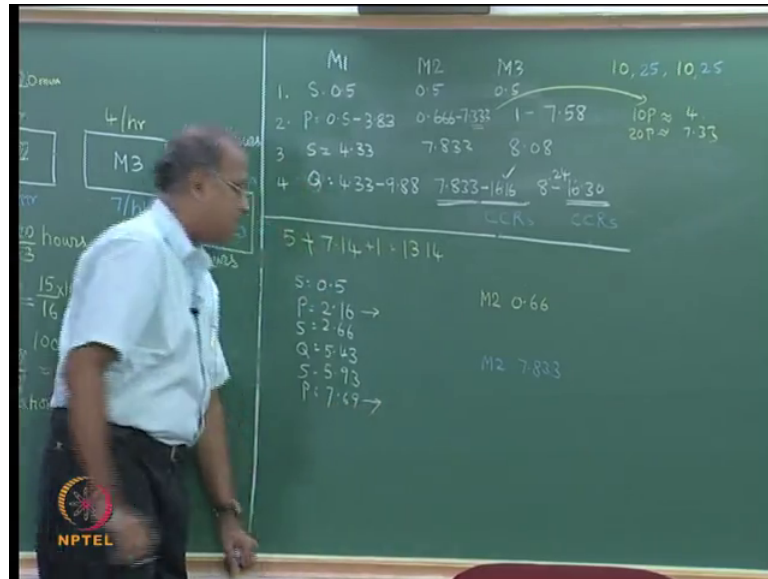 20mm
4/hr
M3
7/h
hours
20/3 hours
15/16
M1 M2 M3
10, 25, 10, 25
1. S = 0.5 0.5 0.5
2. P = 0.5 - 3.83 0.666 - 7.333 1 - 7.58
10P ≈ 4
20P ≈ 7.33
3 S = 4.33 7.833 8.08
4 Q = 4.33 - 9.88 7.833 - 16.16 ✓ 8.24 - 16.30
CCRs CCRs
5 + 7.14 + 1 = 13.14
S = 0.5
P = 2.16 → M2 0.66
S = 2.66
Q = 5.43
S = 5.93 M2 7.833
P = 7.69 →
NPTEL